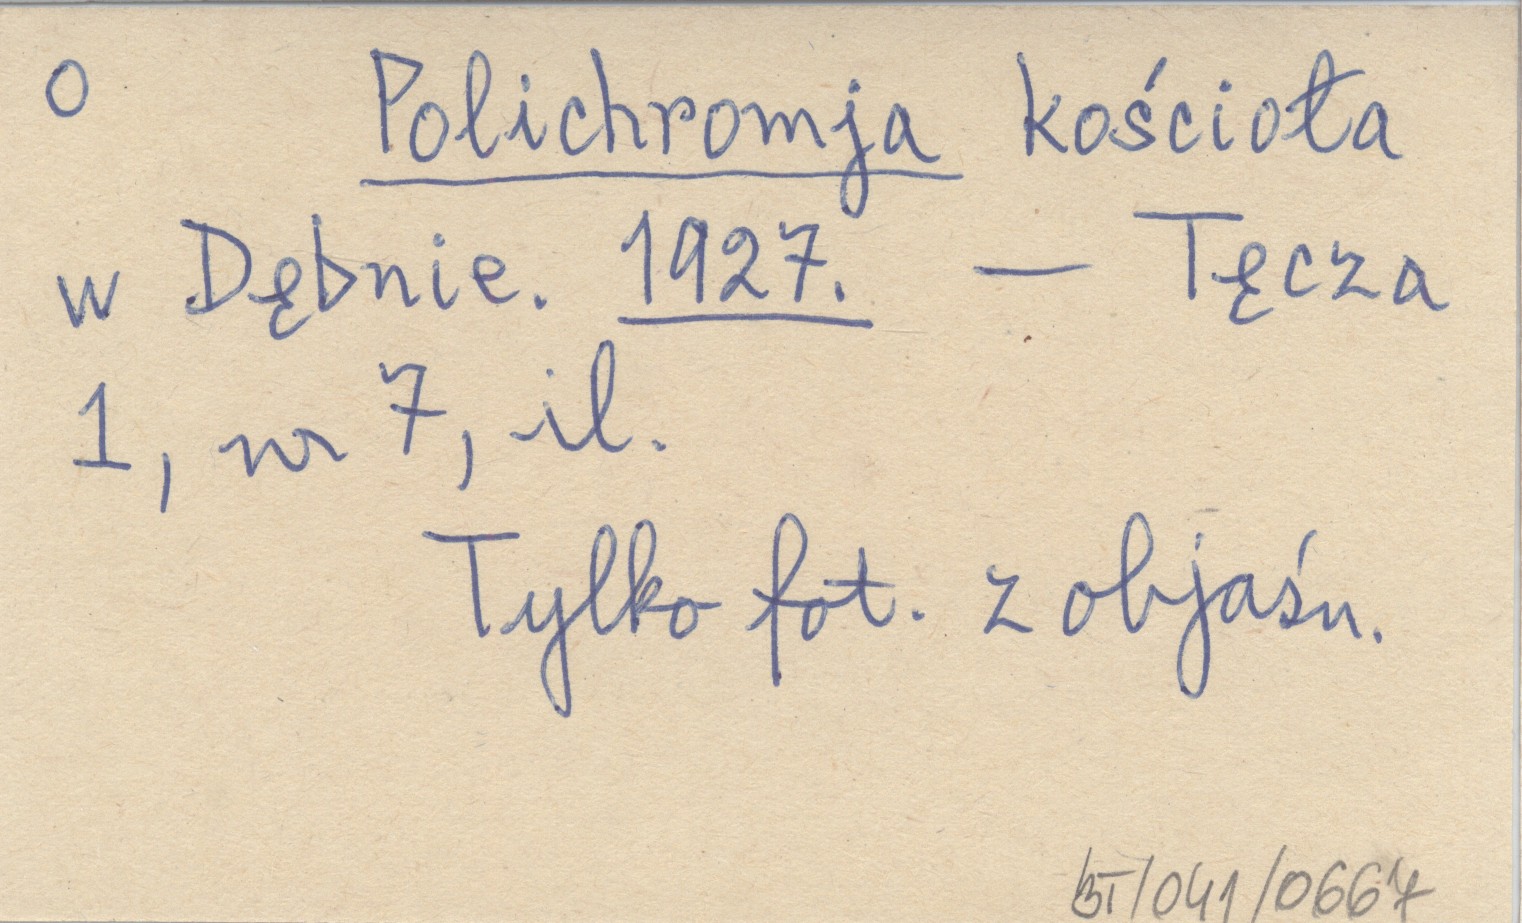 o Polichromja kościoła
w Dębnie. 1927. — Tęcza
1, nr 7, il.
Tylko fot. z objaśn.
BT/041/0667